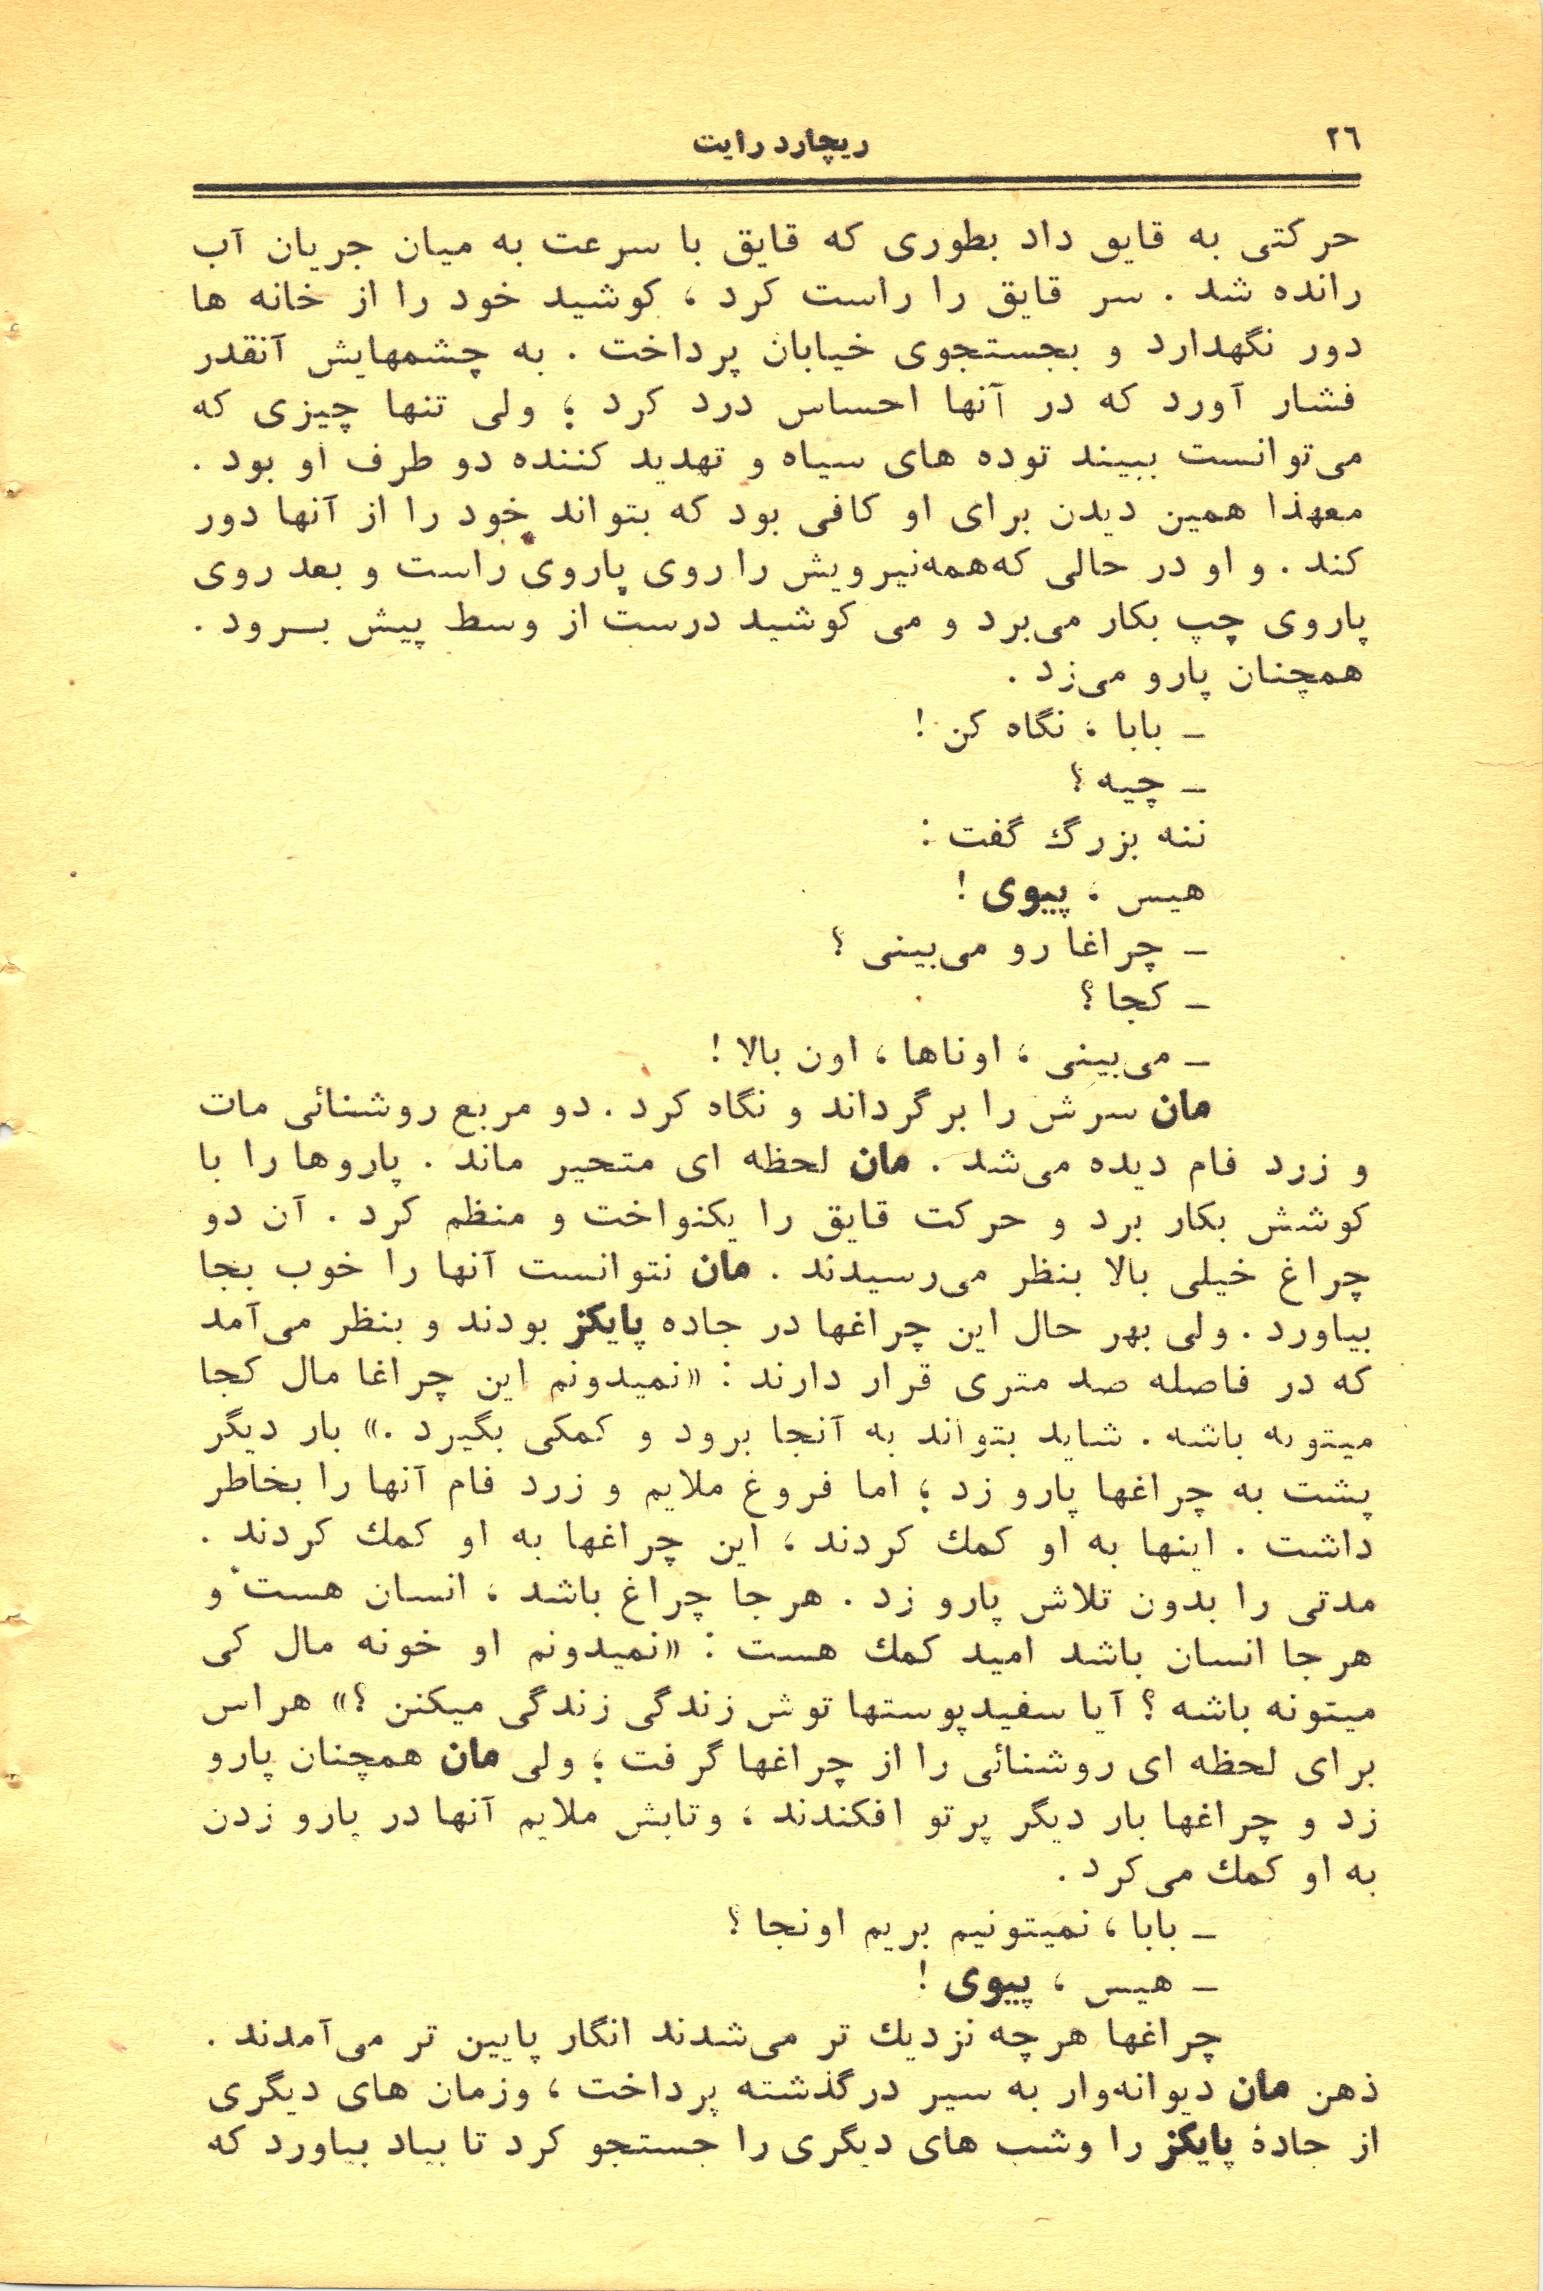 ۲٦
ریچارد رایت
حرکتی به قایق داد بطوری که قایق با سرعت به میان جریان آب
رانده شد . سر قایق را راست کرد ، کوشید خود را از خانه ها
دور نگهدارد و بجستجوی خیابان پرداخت . به چشمهایش آنقدر
فشار آورد که در آنها احساس درد کرد ؛ ولی تنها چیزی که
می‌توانست ببیند توده های سیاه و تهدید کننده دو طرف او بود .
معهذا همین دیدن برای او کافی بود که بتواند خود را از آنها دور
کند . و او در حالی که‌همه‌نیرویش را روی پاروی راست و بعد روی
پاروی چپ بکار می‌برد و می کوشید درست از وسط پیش بـرود .
همچنان پارو می‌زد .
ـ بابا ، نگاه کن !
ـ چیه ؟
ننه بزرگ گفت :
هیس ، پیوی !
ـ چراغا رو می‌بینی ؟
ـ کجا ؟
ـ می‌بینی ، اوناها ، اون بالا !
مان سرش را برگرداند و نگاه کرد . دو مربع روشنائی مات
و زرد فام دیده می‌شد . مان لحظه ای متحیر ماند . پاروها را با
کوشش بکار برد و حرکت قایق را یکنواخت و منظم کرد . آن دو
چراغ خیلی بالا بنظر می‌رسیدند . مان نتوانست آنها را خوب بجا
بیاورد . ولی بهر حال این چراغها در جاده پایکز بودند و بنظر می‌آمد
که در فاصله صد متری قرار دارند : «نمیدونم این چراغا مال کجا
میتونه باشه . شاید بتواند به آنجا برود و کمکی بگیرد .» بار دیگر
پشت به چراغها پارو زد ؛ اما فروغ ملایم و زرد فام آنها را بخاطر
داشت . اینها به او کمك کردند ، این چراغها به او کمك کردند .
مدتی را بدون تلاش پارو زد . هرجا چراغ باشد ، انسان هست و
هرجا انسان باشد امید کمك هست : «نمیدونم او خونه مال کی
میتونه باشه ؟ آیا سفیدپوستها توش زندگی زندگی میکنن ؟» هراس
برای لحظه ای روشنائی را از چراغها گرفت ؛ ولی مان همچنان پارو
زد و چراغها بار دیگر پرتو افکندند ، وتابش ملایم آنها در پارو زدن
به او کمك می‌کرد .
ـ بابا ، نمیتونیم بریم اونجا ؟
ـ هیس ، پیوی !
چراغها هرچه نزدیك تر می‌شدند انگار پایین تر می‌آمدند .
ذهن مان دیوانه‌وار به سیر درگذشته پرداخت ، وزمان های دیگری
از جادهٔ پایکز را وشب های دیگری را جستجو کرد تا بیاد بیاورد که